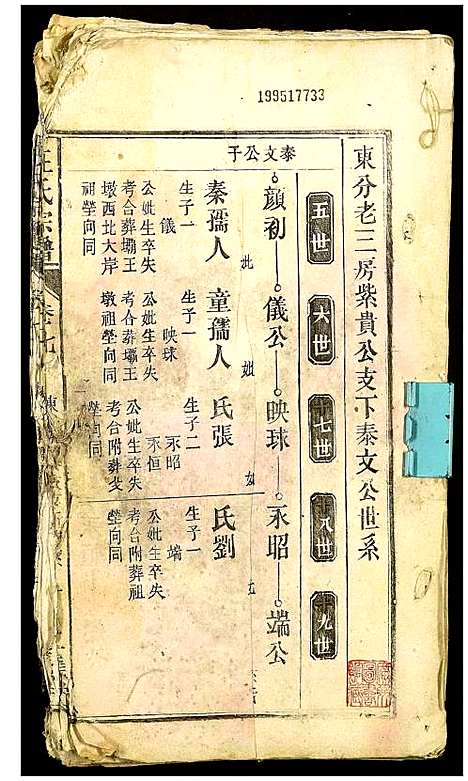 199517733
東分老三房紫貴公支下泰文公世系
五世
六世
十七世
十八世
十九世
泰文公子
顏初
儀公
映球
永昭
端公
秦孺人
妣
生子一
儀
公妣生卒失
考合葬壩王
墩西北大岸
祖塋向同
童孺人
生子一
映球
公妣生卒失
考合葬壩王
墩祖塋向同
氏張
生子二
永昭
永恒
公妣生卒失
考合附葬
塋向同
氏劉
生子一
端
公妣生卒失
考合附葬祖
塋向同
氏宗譜
卷七